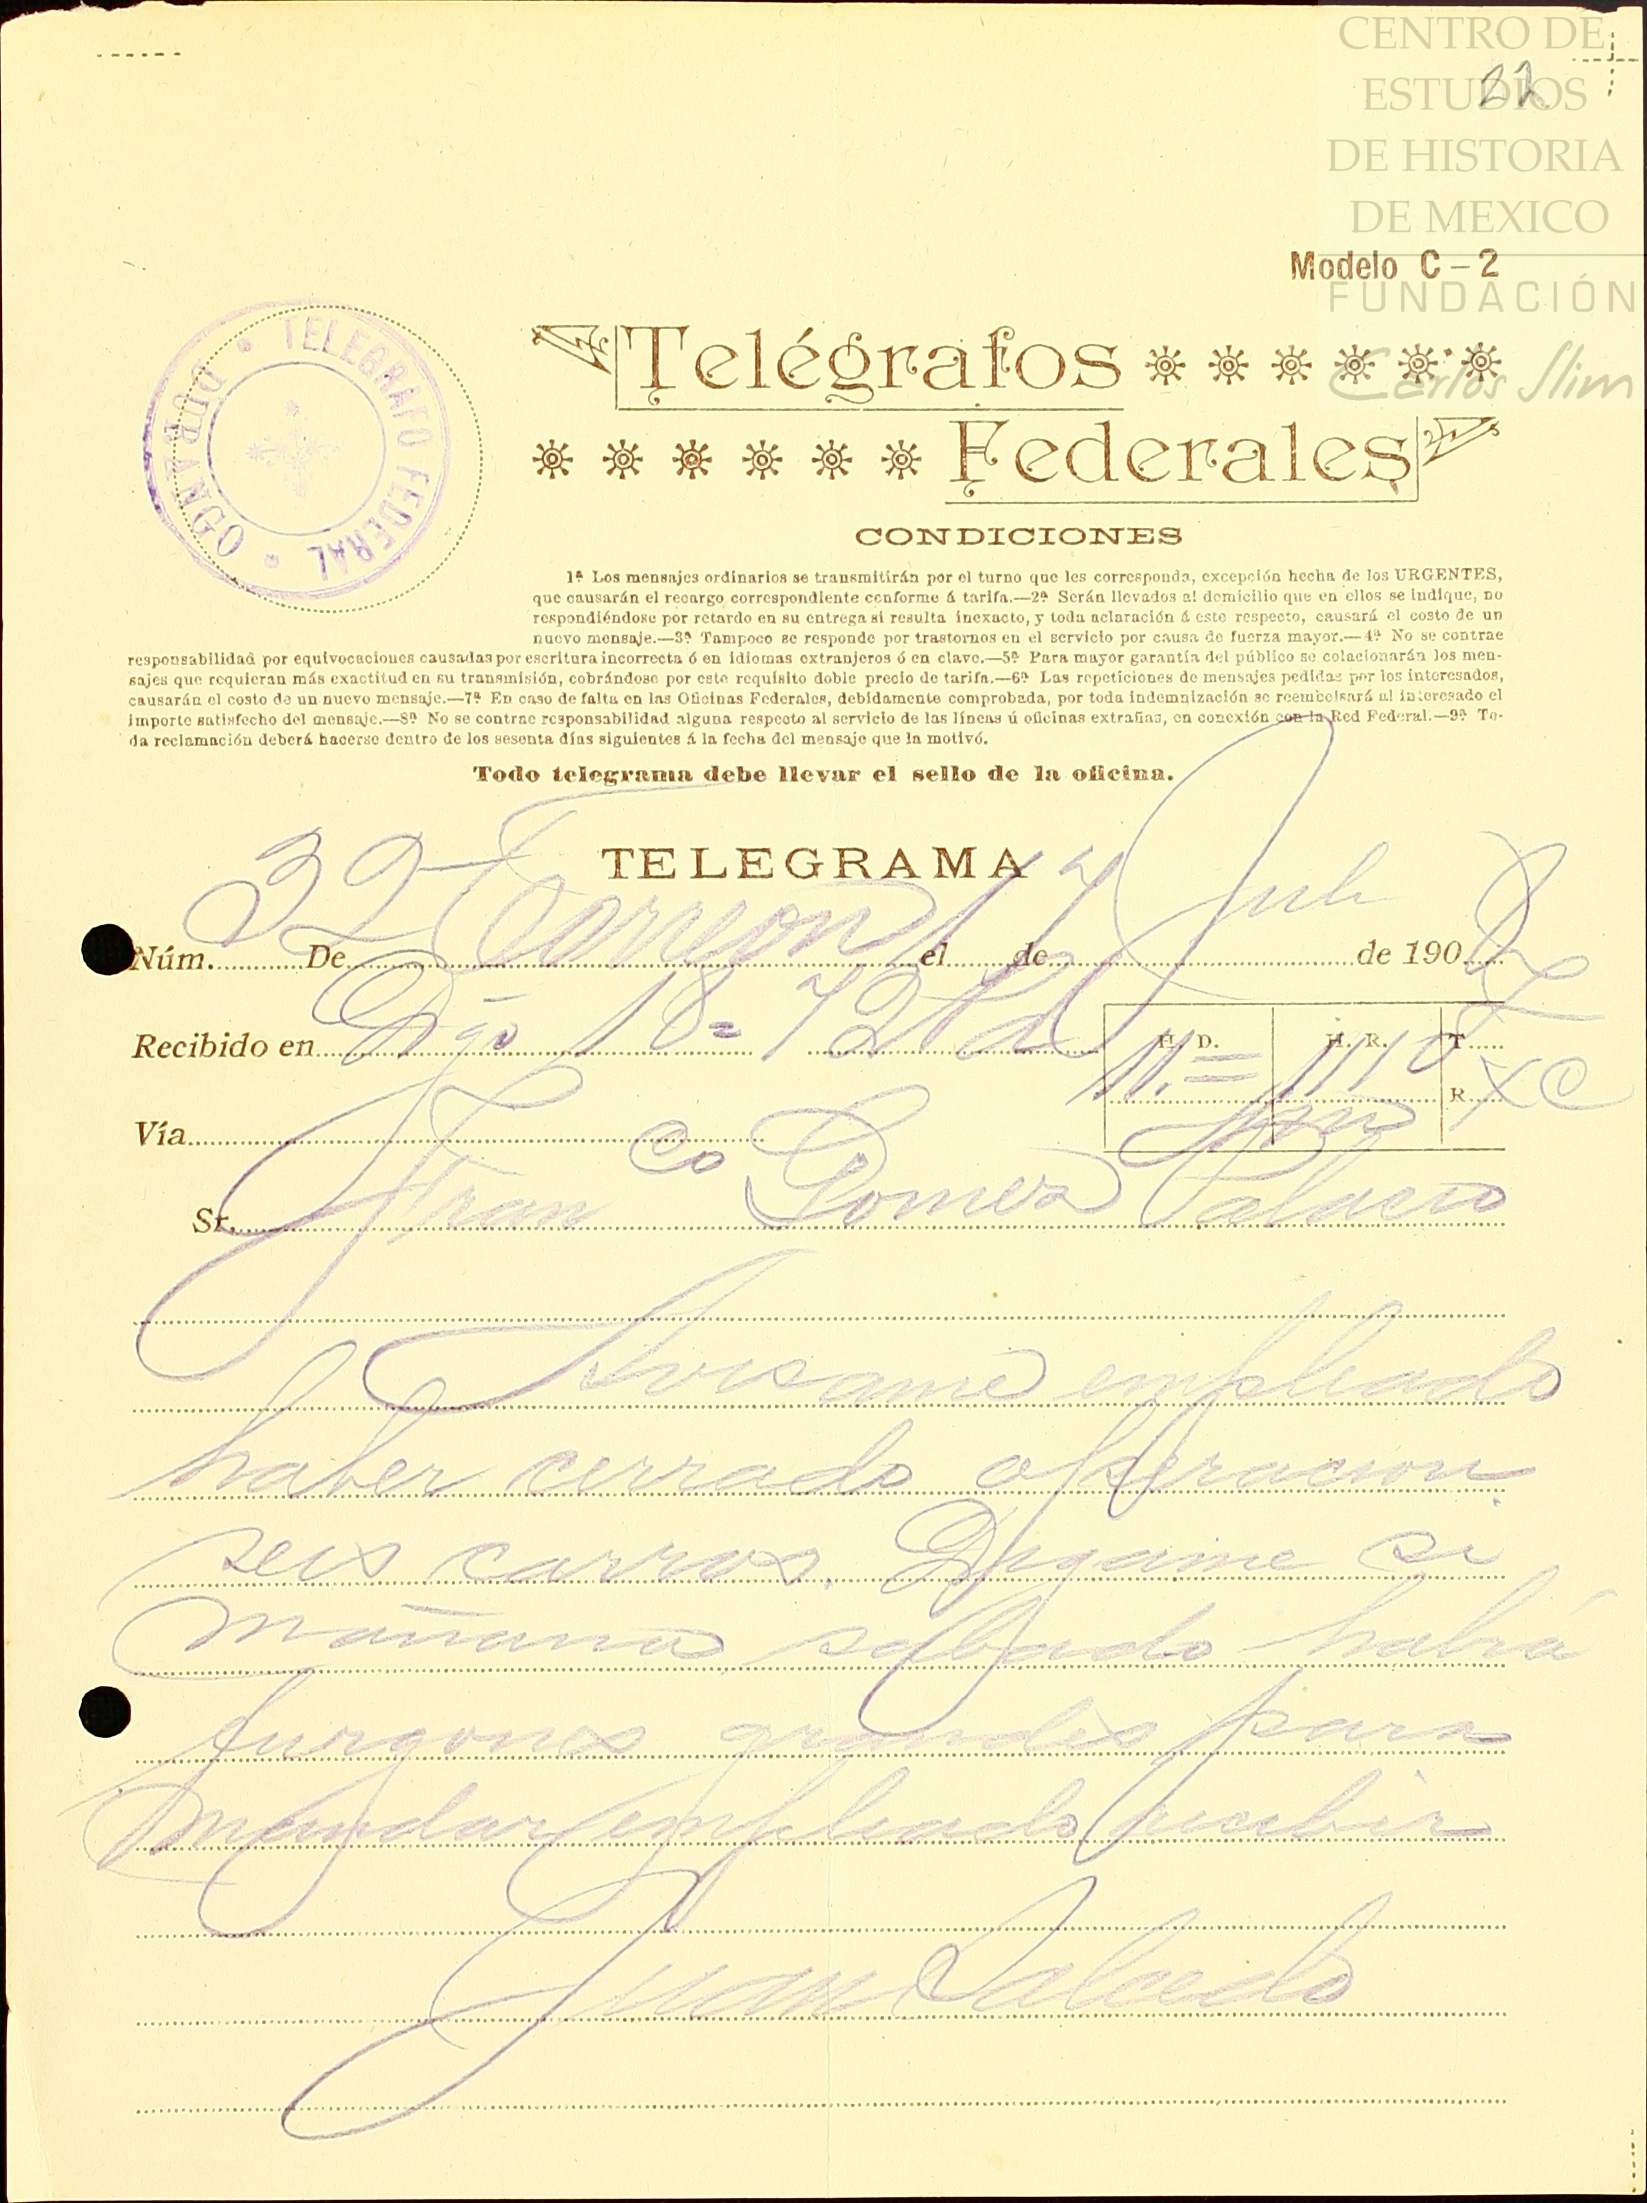 CENTRO DE
ESTUDIOS
DE HISTORIA
DE MEXICO
FUNDACIÓN
Carlos Slim
22
Modelo C-2
TELEGRAFO FEDERAL
DURANGO
Telégrafos
Federales
CONDICIONES
1ª Los mensajes ordinarios se transmitirán por el turno que les corresponda, excepción hecha de los URGENTES,
que causarán el recargo correspondiente conforme á tarifa.—2ª Serán llevados al domicilio que en ellos se indique, no
respondiéndose por retardo en su entrega si resulta inexacto, y toda aclaración á este respecto, causará el costo de un
nuevo mensaje.—3ª Tampoco se responde por trastornos en el servicio por causa de fuerza mayor.—4ª No se contrae
responsabilidad por equivocaciones causadas por escritura incorrecta ó en idiomas extranjeros ó en clave.—5ª Para mayor garantía del público se colacionarán los men-
sajes que requieran más exactitud en su transmisión, cobrándose por este requisito doble precio de tarifa.—6ª Las repeticiones de mensajes pedidas por los interesados,
causarán el costo de un nuevo mensaje.—7ª En caso de falta en las Oficinas Federales, debidamente comprobada, por toda indemnización se reembolsará al interesado el
importe satisfecho del mensaje.—8ª No se contrae responsabilidad alguna respecto al servicio de las líneas ú oficinas extrañas, en conexión con la Red Federal.—9ª To-
da reclamación deberá hacerse dentro de los sesenta días siguientes á la fecha del mensaje que la motivó.
Todo telegrama debe llevar el sello de la oficina.
TELEGRAMA
Núm. 32 De Torreon el 17 de Julio de 190
Recibido en Dgo 18= 72 H. D. 11.= H. R. 1110 T.
Vía R. XC
Sr. Fran co Gomez Palacio
Avisame empleado
haber cerrado operacion
seis carros. Digame si
mañana sabado habrá
furgones grandes para
mandar empleado recibir
Juan Salcedo